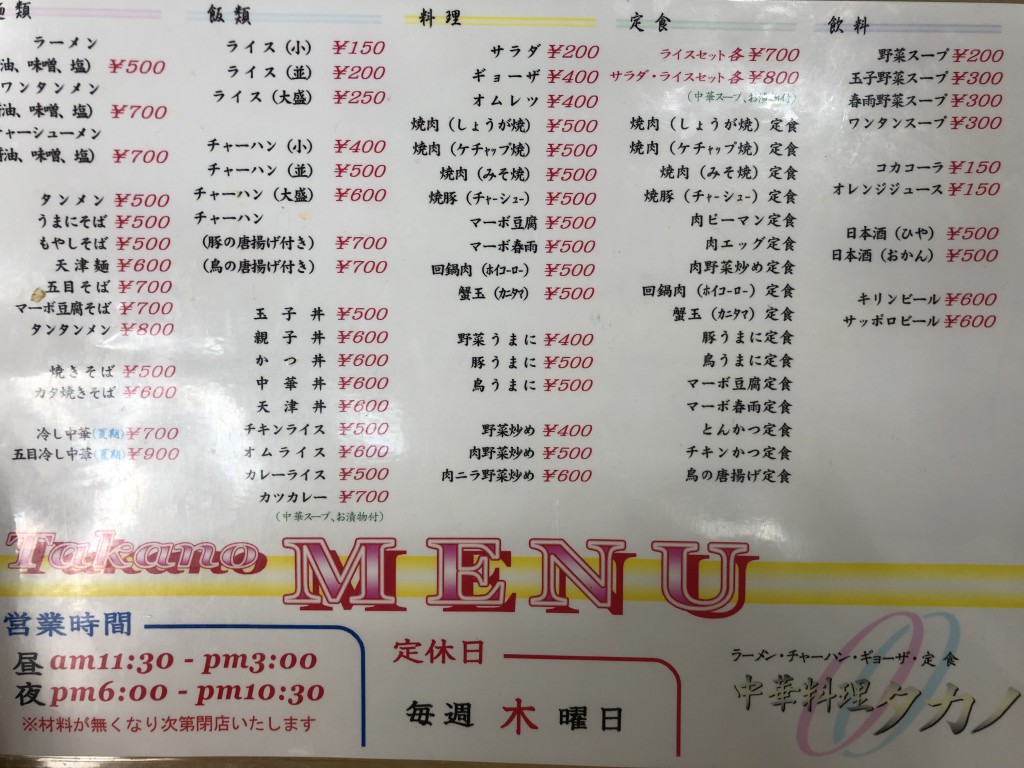 麺類
ラーメン
油、味噌、塩) ¥500
ワンタンメン
油、味噌、塩) ¥700
チャーシューメン
醤油、味噌、塩) ¥700
タンメン ¥500
うまにそば ¥500
もやしそば ¥500
天津麺 ¥600
五目そば ¥700
マーボ豆腐そば ¥700
タンタンメン ¥800
焼きそば ¥500
カタ焼きそば ¥600
冷し中華(夏期) ¥700
五目冷し中華(夏期) ¥900
飯類
ライス(小) ¥150
ライス(並) ¥200
ライス(大盛) ¥250
チャーハン(小) ¥400
チャーハン(並) ¥500
チャーハン(大盛) ¥600
チャーハン
(豚の唐揚げ付き) ¥700
(鳥の唐揚げ付き) ¥700
玉子丼 ¥500
親子丼 ¥600
かつ丼 ¥600
中華丼 ¥600
天津丼 ¥600
チキンライス ¥500
オムライス ¥600
カレーライス ¥500
カツカレー ¥700
(中華スープ、お漬物付)
料理
サラダ ¥200
ギョーザ ¥400
オムレツ ¥400
焼肉(しょうが焼) ¥500
焼肉(ケチャップ焼) ¥500
焼肉(みそ焼) ¥500
焼豚(チャーシュー) ¥500
マーボ豆腐 ¥500
マーボ春雨 ¥500
回鍋肉(ホイコーロー) ¥500
蟹玉(カニタマ) ¥500
野菜うまに ¥400
豚うまに ¥500
鳥うまに ¥500
野菜炒め ¥400
肉野菜炒め ¥500
肉ニラ野菜炒め ¥600
定食
ライスセット各 ¥700
サラダ・ライスセット各 ¥800
(中華スープ、お付)
焼肉(しょうが焼)定食
焼肉(ケチャップ焼)定食
焼肉(みそ焼)定食
焼豚(チャーシュー)定食
肉ピーマン定食
肉エッグ定食
肉野菜炒め定食
回鍋肉(ホイコーロー)定食
蟹玉(カニタマ)定食
豚うまに定食
鳥うまに定食
マーボ豆腐定食
マーボ春雨定食
とんかつ定食
チキンかつ定食
鳥の唐揚げ定食
飲料
野菜スープ ¥200
玉子野菜スープ ¥300
春雨野菜スープ ¥300
ワンタンスープ ¥300
コカコーラ ¥150
オレンジジュース ¥150
日本酒(ひや) ¥500
日本酒(おかん) ¥500
キリンビール ¥600
サッポロビール ¥600
Takano MENU
営業時間
昼 am11:30 - pm3:00
夜 pm6:00 - pm10:30
※材料が無くなり次第閉店いたします
定休日
毎週 木 曜日
ラーメン・チャーハン・ギョーザ・定食
中華料理タカノ